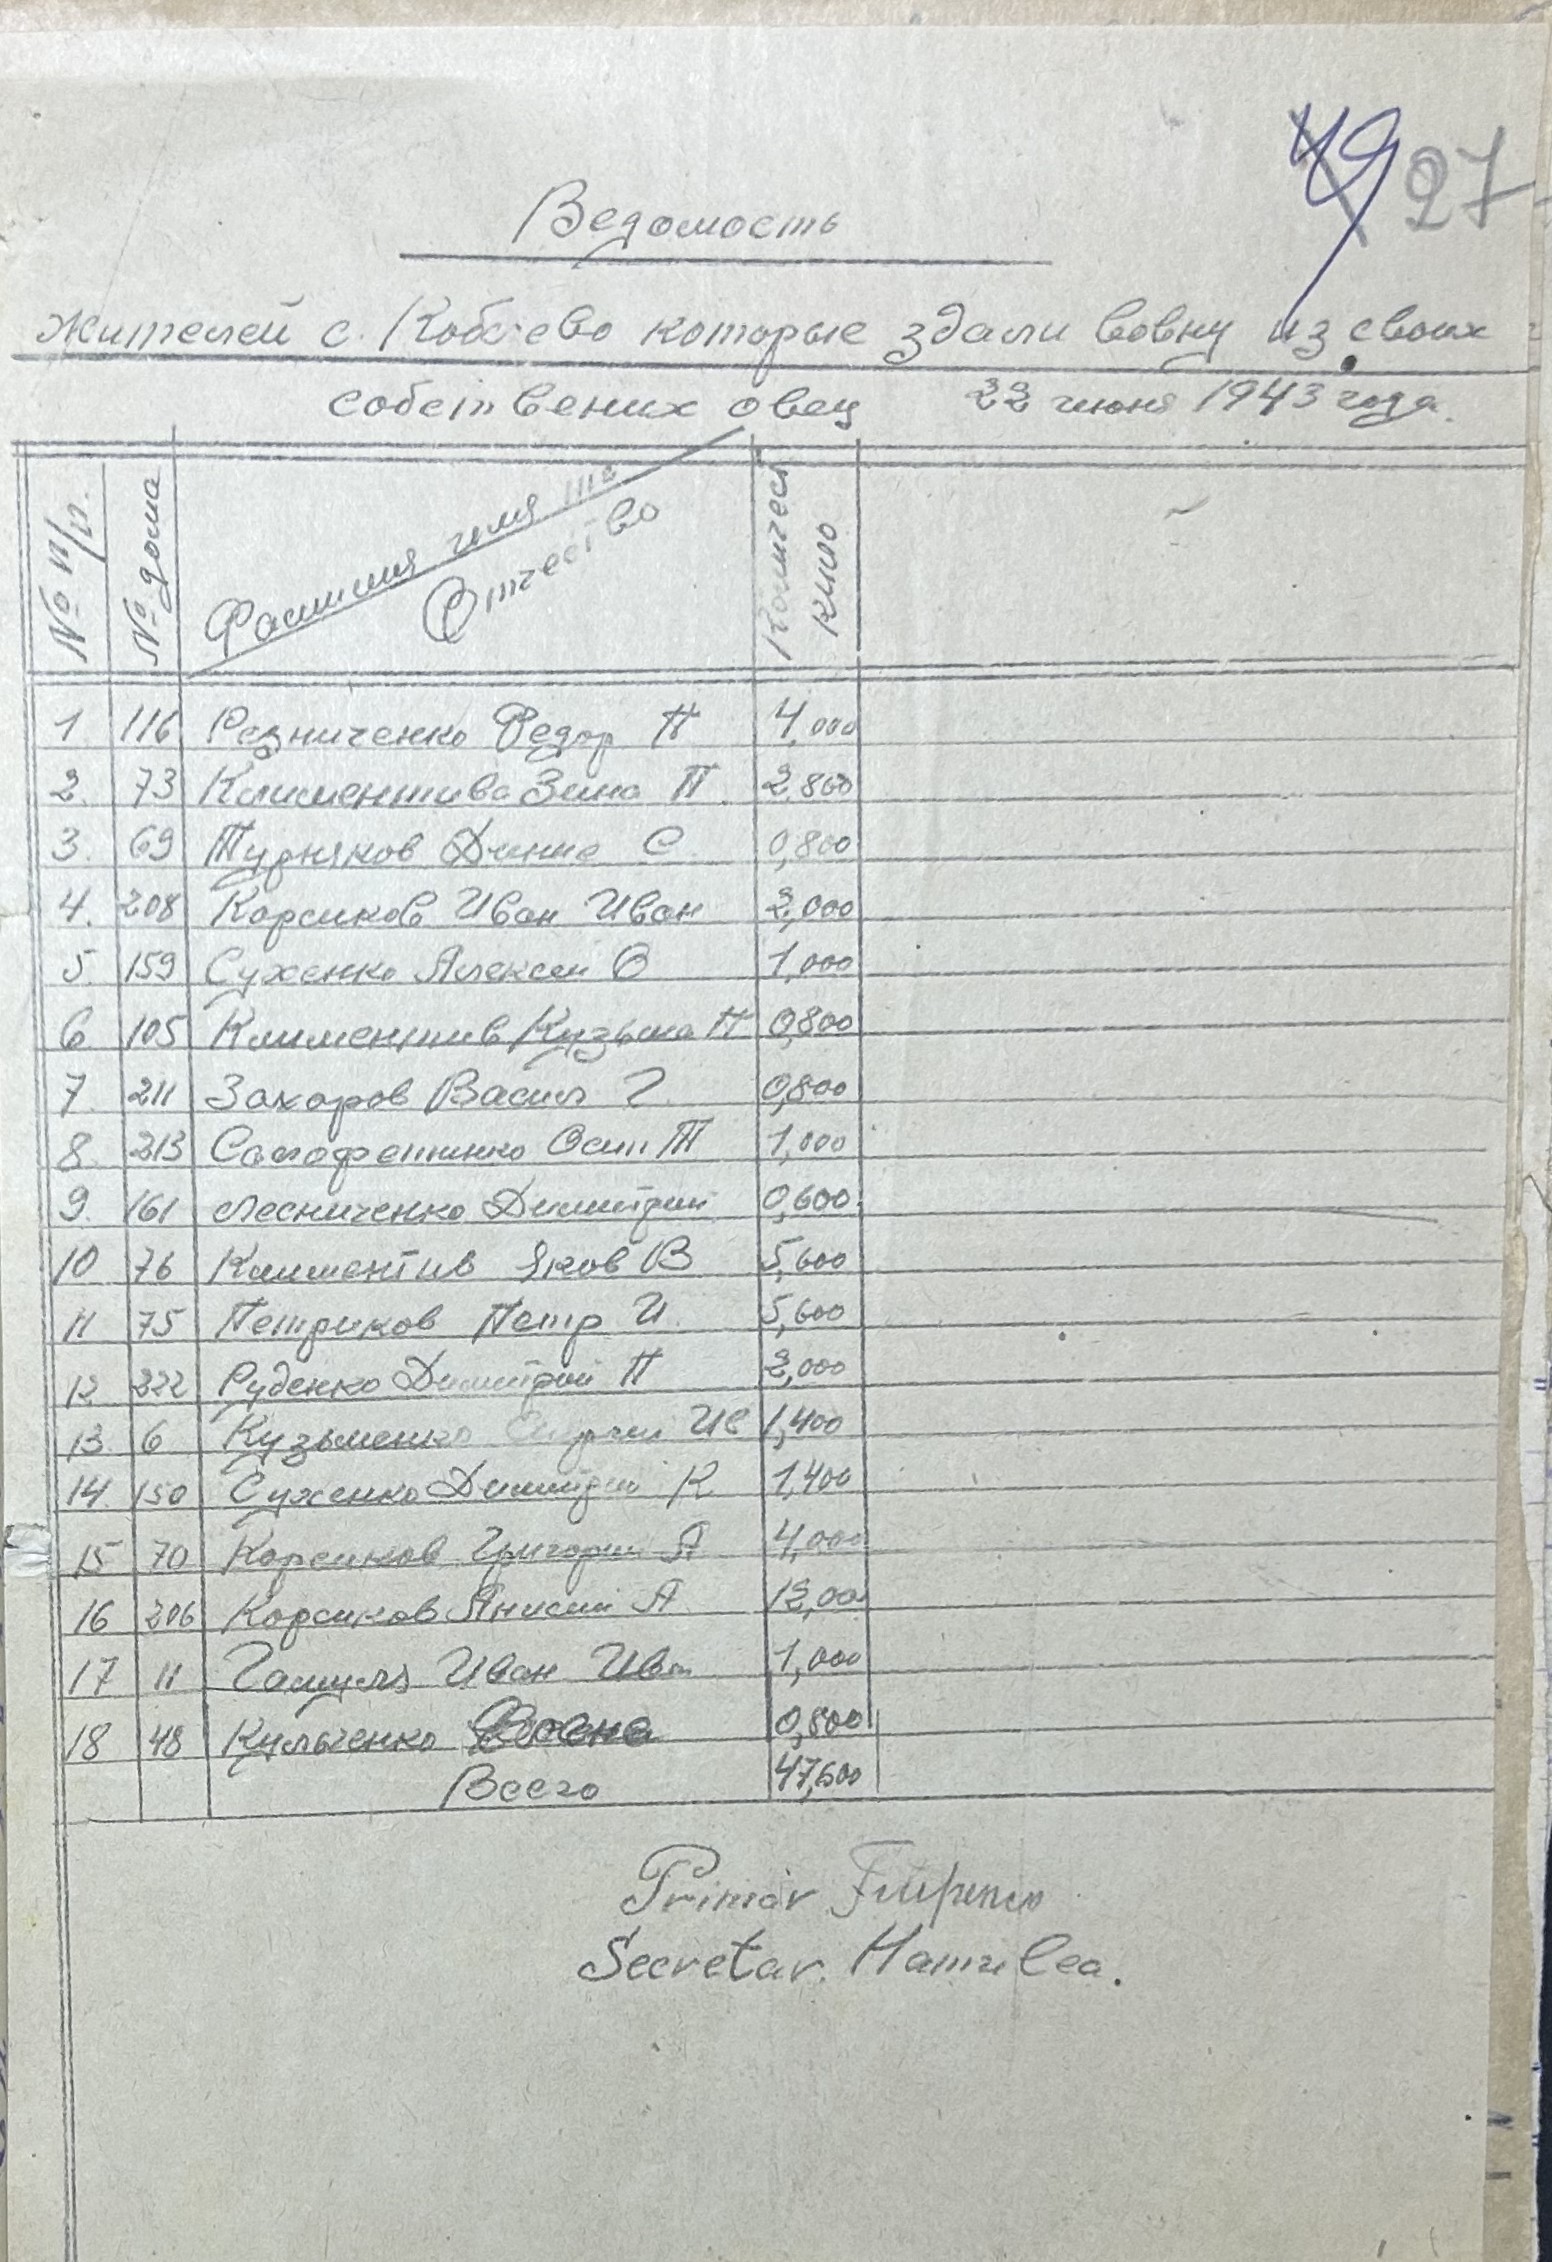 49 27
Ведомость
Жителей с. Кобзево которые здали вовну из своих
собствених овец 22 июня 1943 года.
№ п/п. № дома Фамилия имя Отчество Количест кило
1 116 Резниченко Федор П 4,000
2. 73 Климентива Зина П. 2,800
3. 69 Турняков С. 0,800
4. 208 Корсиков Иван Иван 2,000
5. 159 Сухенко Алексеи О 1,000
6 105 Климентив Кузьма П 0,800
7. 211 Захаров Васил Г. 0,800
8. 213 Осип Т 1,000
9. 161 Лесниченко Димитрии 0,600
10 76 Климентив Яков В 5,600
11 75 Петриков Петр И. 5,600
12 222 Руденко Димитрий П 2,000
13. 6 Кузьменко Ив 1,400
14. 150 Сухенко Димитрии К 1,400
15 70 Корсиков Григории А 4,000
16 206 Корсиков Анисий А 12,00
17 11 Иван Ив 1,000
18 48 Кульченко 0,800
Всего 47,600
Primar
Secretar.